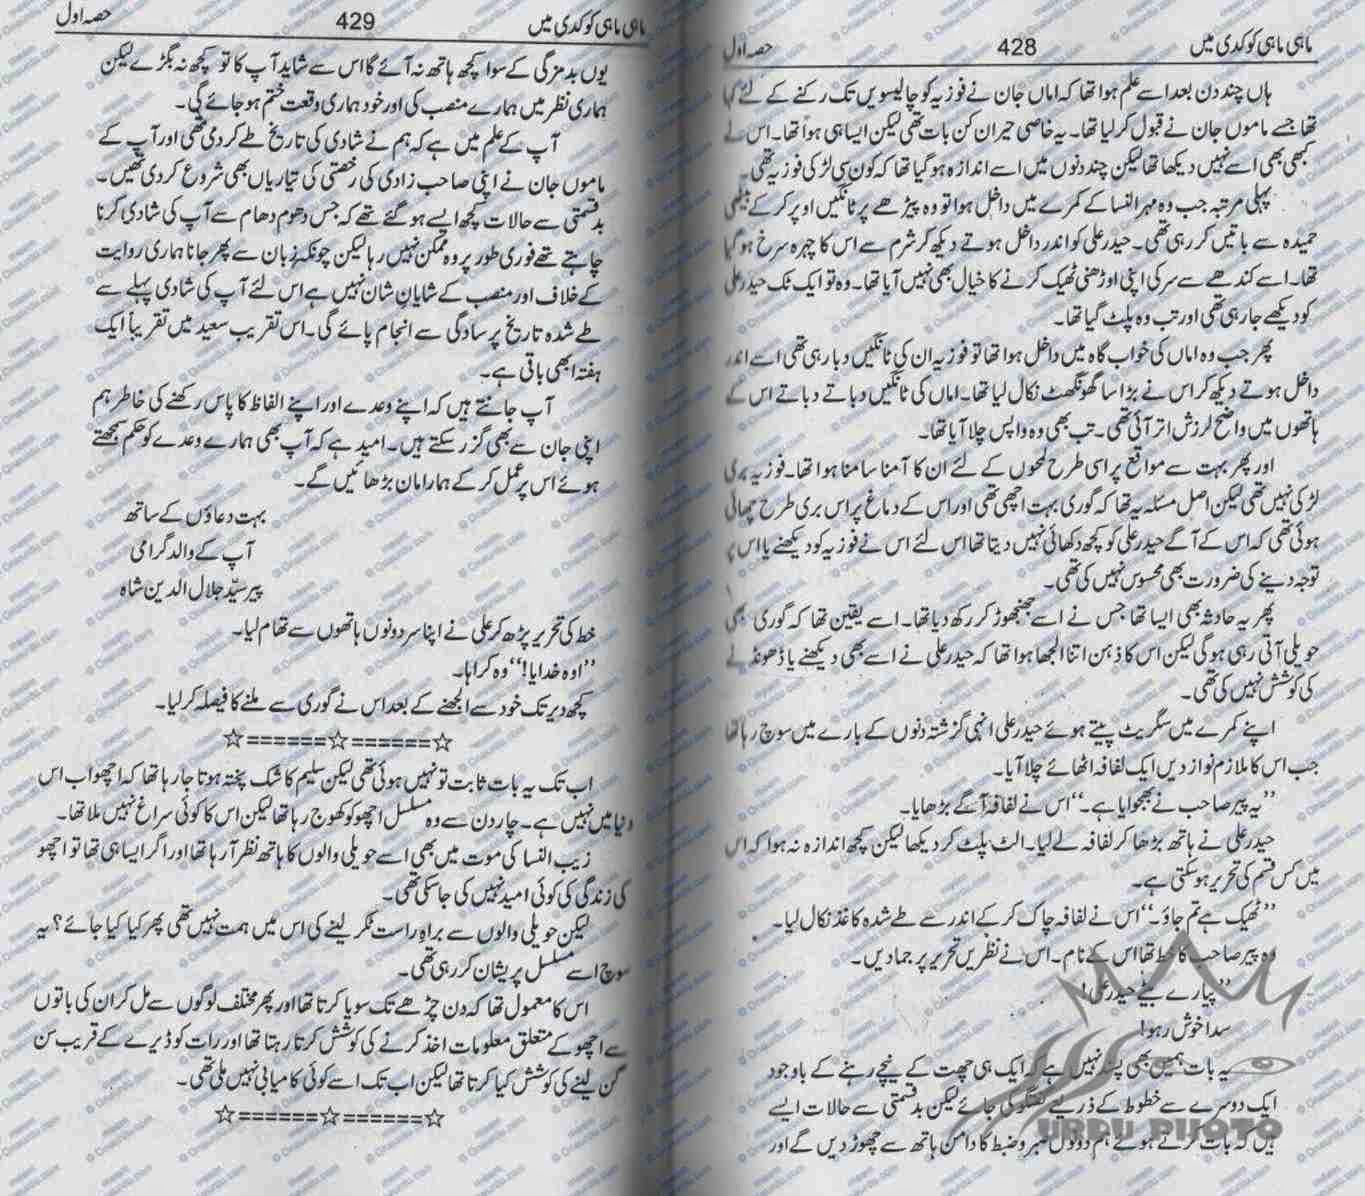 ماہی ماہی کوکدی میں 428 حصہ اول
ہاں چند دن بعد اسے علم ہوا تھا کہ اماں جان نے فوزیہ کو چالیسویں تک رکنے کے لئے کہا
تھا جسے ماموں جان نے قبول کر لیا تھا۔ یہ خاصی حیران کن بات تھی لیکن ایسا ہی ہوا تھا۔ اس نے
کبھی بھی اسے نہیں دیکھا تھا لیکن چند دنوں میں اسے اندازہ ہو گیا تھا کہ کون سی لڑکی فوزیہ تھی۔
پہلی مرتبہ جب وہ مہر النسا کے کمرے میں داخل ہوا تو وہ پیڑھے پر ٹانگیں اوپر کر کے بیٹھی
حمیدہ سے باتیں کر رہی تھی۔ حیدر علی کو اندر داخل ہوتے دیکھ کر شرم سے اس کا چہرہ سرخ ہو گیا
تھا۔ اسے کندھے سے سرکی اپنی اوڑھنی ٹھیک کرنے کا خیال بھی نہیں آیا تھا۔ وہ تو ایک ٹک حیدر علی
کو دیکھے جا رہی تھی اور تب وہ پلٹ گیا تھا۔
پھر جب وہ اماں کی خواب گاہ میں داخل ہوا تھا تو فوزیہ ان کی ٹانگیں دبا رہی تھی اسے اندر
داخل ہوتے دیکھ کر اس نے بڑا سا گھونگھٹ نکال لیا تھا۔ اماں کی ٹانگیں دباتے دباتے اس کے
ہاتھوں میں واضح لرزش اتر آئی تھی۔ تب بھی وہ واپس چلا آیا تھا۔
اور پھر بہت سے مواقع پر اسی طرح لمحوں کے لئے ان کا آمنا سامنا ہوا تھا۔ فوزیہ بری
لڑکی نہیں تھی لیکن اصل مسئلہ یہ تھا کہ گوری بہت اچھی تھی اور اس کے دماغ پر اس بری طرح چھائی
ہوئی تھی کہ اس کے آگے حیدر علی کو کچھ دکھائی نہیں دیتا تھا اس لئے اس نے فوزیہ کو دیکھنے یا اس پر
توجہ دینے کی ضرورت بھی محسوس نہیں کی تھی۔
پھر یہ حادثہ بھی ایسا تھا جس نے اسے جھنجھوڑ کر رکھ دیا تھا۔ اسے یقین تھا کہ گوری بھی
حویلی آتی رہی ہوگی لیکن اس کا ذہن اتنا الجھا ہوا تھا کہ حیدر علی نے اسے بھی دیکھنے یا ڈھونڈنے
کی کوشش نہیں کی تھی۔
اپنے کمرے میں سگریٹ پیتے ہوئے حیدر علی انہی گزشتہ دنوں کے بارے میں سوچ رہا تھا
جب اس کا ملازم نواز دیں ایک لفافہ اٹھائے چلا آیا۔
”یہ پیر صاحب نے بھجوایا ہے۔“ اس نے لفافہ آگے بڑھایا۔
حیدر علی نے ہاتھ بڑھا کر لفافہ لے لیا۔ الٹ پلٹ کر دیکھا لیکن کچھ اندازہ نہ ہوا کہ اس
میں کس قسم کی تحریر ہو سکتی ہے۔
”ٹھیک ہے تم جاؤ۔“ اس نے لفافہ چاک کر کے اندر سے طے شدہ کاغذ نکال لیا۔
وہ پیر صاحب کا خط تھا اس کے نام۔ اس نے نظریں تحریر پر جما دیں۔
”پیارے بیٹے حیدر علی!
سدا خوش رہو!
یہ بات ہمیں بھی پسند نہیں ہے کہ ایک ہی چھت کے نیچے رہنے کے باوجود
ایک دوسرے سے خطوط کے ذریعے گفتگو کی جائے لیکن بدقسمتی سے حالات ایسے
ہیں کہ بات کرتے ہوئے ہم دونوں صبر و ضبط کا دامن ہاتھ سے چھوڑ دیں گے اور
URDU PHOTO
ماہی ماہی کوکدی میں 429 حصہ اول
یوں بدمزگی کے سوا کچھ ہاتھ نہ آئے گا اس سے شاید آپ کا تو کچھ نہ بگڑے لیکن
ہماری نظر میں ہمارے منصب کی اور خود ہماری وقعت ختم ہو جائے گی۔
آپ کے علم میں ہے کہ ہم نے شادی کی تاریخ طے کر دی تھی اور آپ کے
ماموں جان نے اپنی صاحب زادی کی رخصتی کی تیاریاں بھی شروع کر دی تھیں۔
بدقسمتی سے حالات کچھ ایسے ہو گئے تھے کہ جس دھوم دھام سے آپ کی شادی کرنا
چاہتے تھے فوری طور پر وہ ممکن نہیں رہا لیکن چونکہ زبان سے پھر جانا ہماری روایت
کے خلاف اور منصب کے شایان شان نہیں ہے اس لئے آپ کی شادی پہلے سے
طے شدہ تاریخ پر سادگی سے انجام پائے گی۔ اس تقریب سعید میں تقریباً ایک
ہفتہ ابھی باقی ہے۔
آپ جانتے ہیں کہ اپنے وعدے اور اپنے الفاظ کا پاس رکھنے کی خاطر ہم
اپنی جان سے بھی گزر سکتے ہیں۔ امید ہے کہ آپ بھی ہمارے وعدے کو حکم سمجھتے
ہوئے اس پر عمل کر کے ہمارا مان بڑھائیں گے۔
بہت دعاؤں کے ساتھ
آپ کے والد گرامی
پیر سیّد جلال الدین شاہ
خط کی تحریر پڑھ کر علی نے اپنا سر دونوں ہاتھوں سے تھام لیا۔
”اوہ خدایا!“ وہ کراہا۔
کچھ دیر تک خود سے الجھنے کے بعد اس نے گوری سے ملنے کا فیصلہ کر لیا۔
☆======☆======☆
اب تک یہ بات ثابت تو نہیں ہوئی تھی لیکن سلیم کا شک پختہ ہوتا جا رہا تھا کہ اچھو اب اس
دنیا میں نہیں ہے۔ چار دن سے وہ مسلسل اچھو کو کھوج رہا تھا لیکن اس کا کوئی سراغ نہیں ملا تھا۔
زیب النسا کی موت میں بھی اسے حویلی والوں کا ہاتھ نظر آ رہا تھا اور اگر ایسا ہی تھا تو اچھو
کی زندگی کی کوئی امید نہیں کی جا سکی تھی۔
لیکن حویلی والوں سے براہ راست ٹکر لینے کی اس میں ہمت نہیں تھی پھر کیا کیا جائے؟ یہ
سوچ اسے مسلسل پریشان کر رہی تھی۔
اس کا معمول تھا کہ دن چڑھے تک سویا کرتا تھا اور پھر مختلف لوگوں سے مل کر ان کی باتوں
سے اچھو کے متعلق معلومات اخذ کرنے کی کوشش کرتا رہتا تھا اور رات کو ڈیرے کے قریب سن
گن لینے کی کوشش کیا کرتا تھا لیکن اب تک اسے کوئی کامیابی نہیں ملی تھی۔
☆======☆======☆